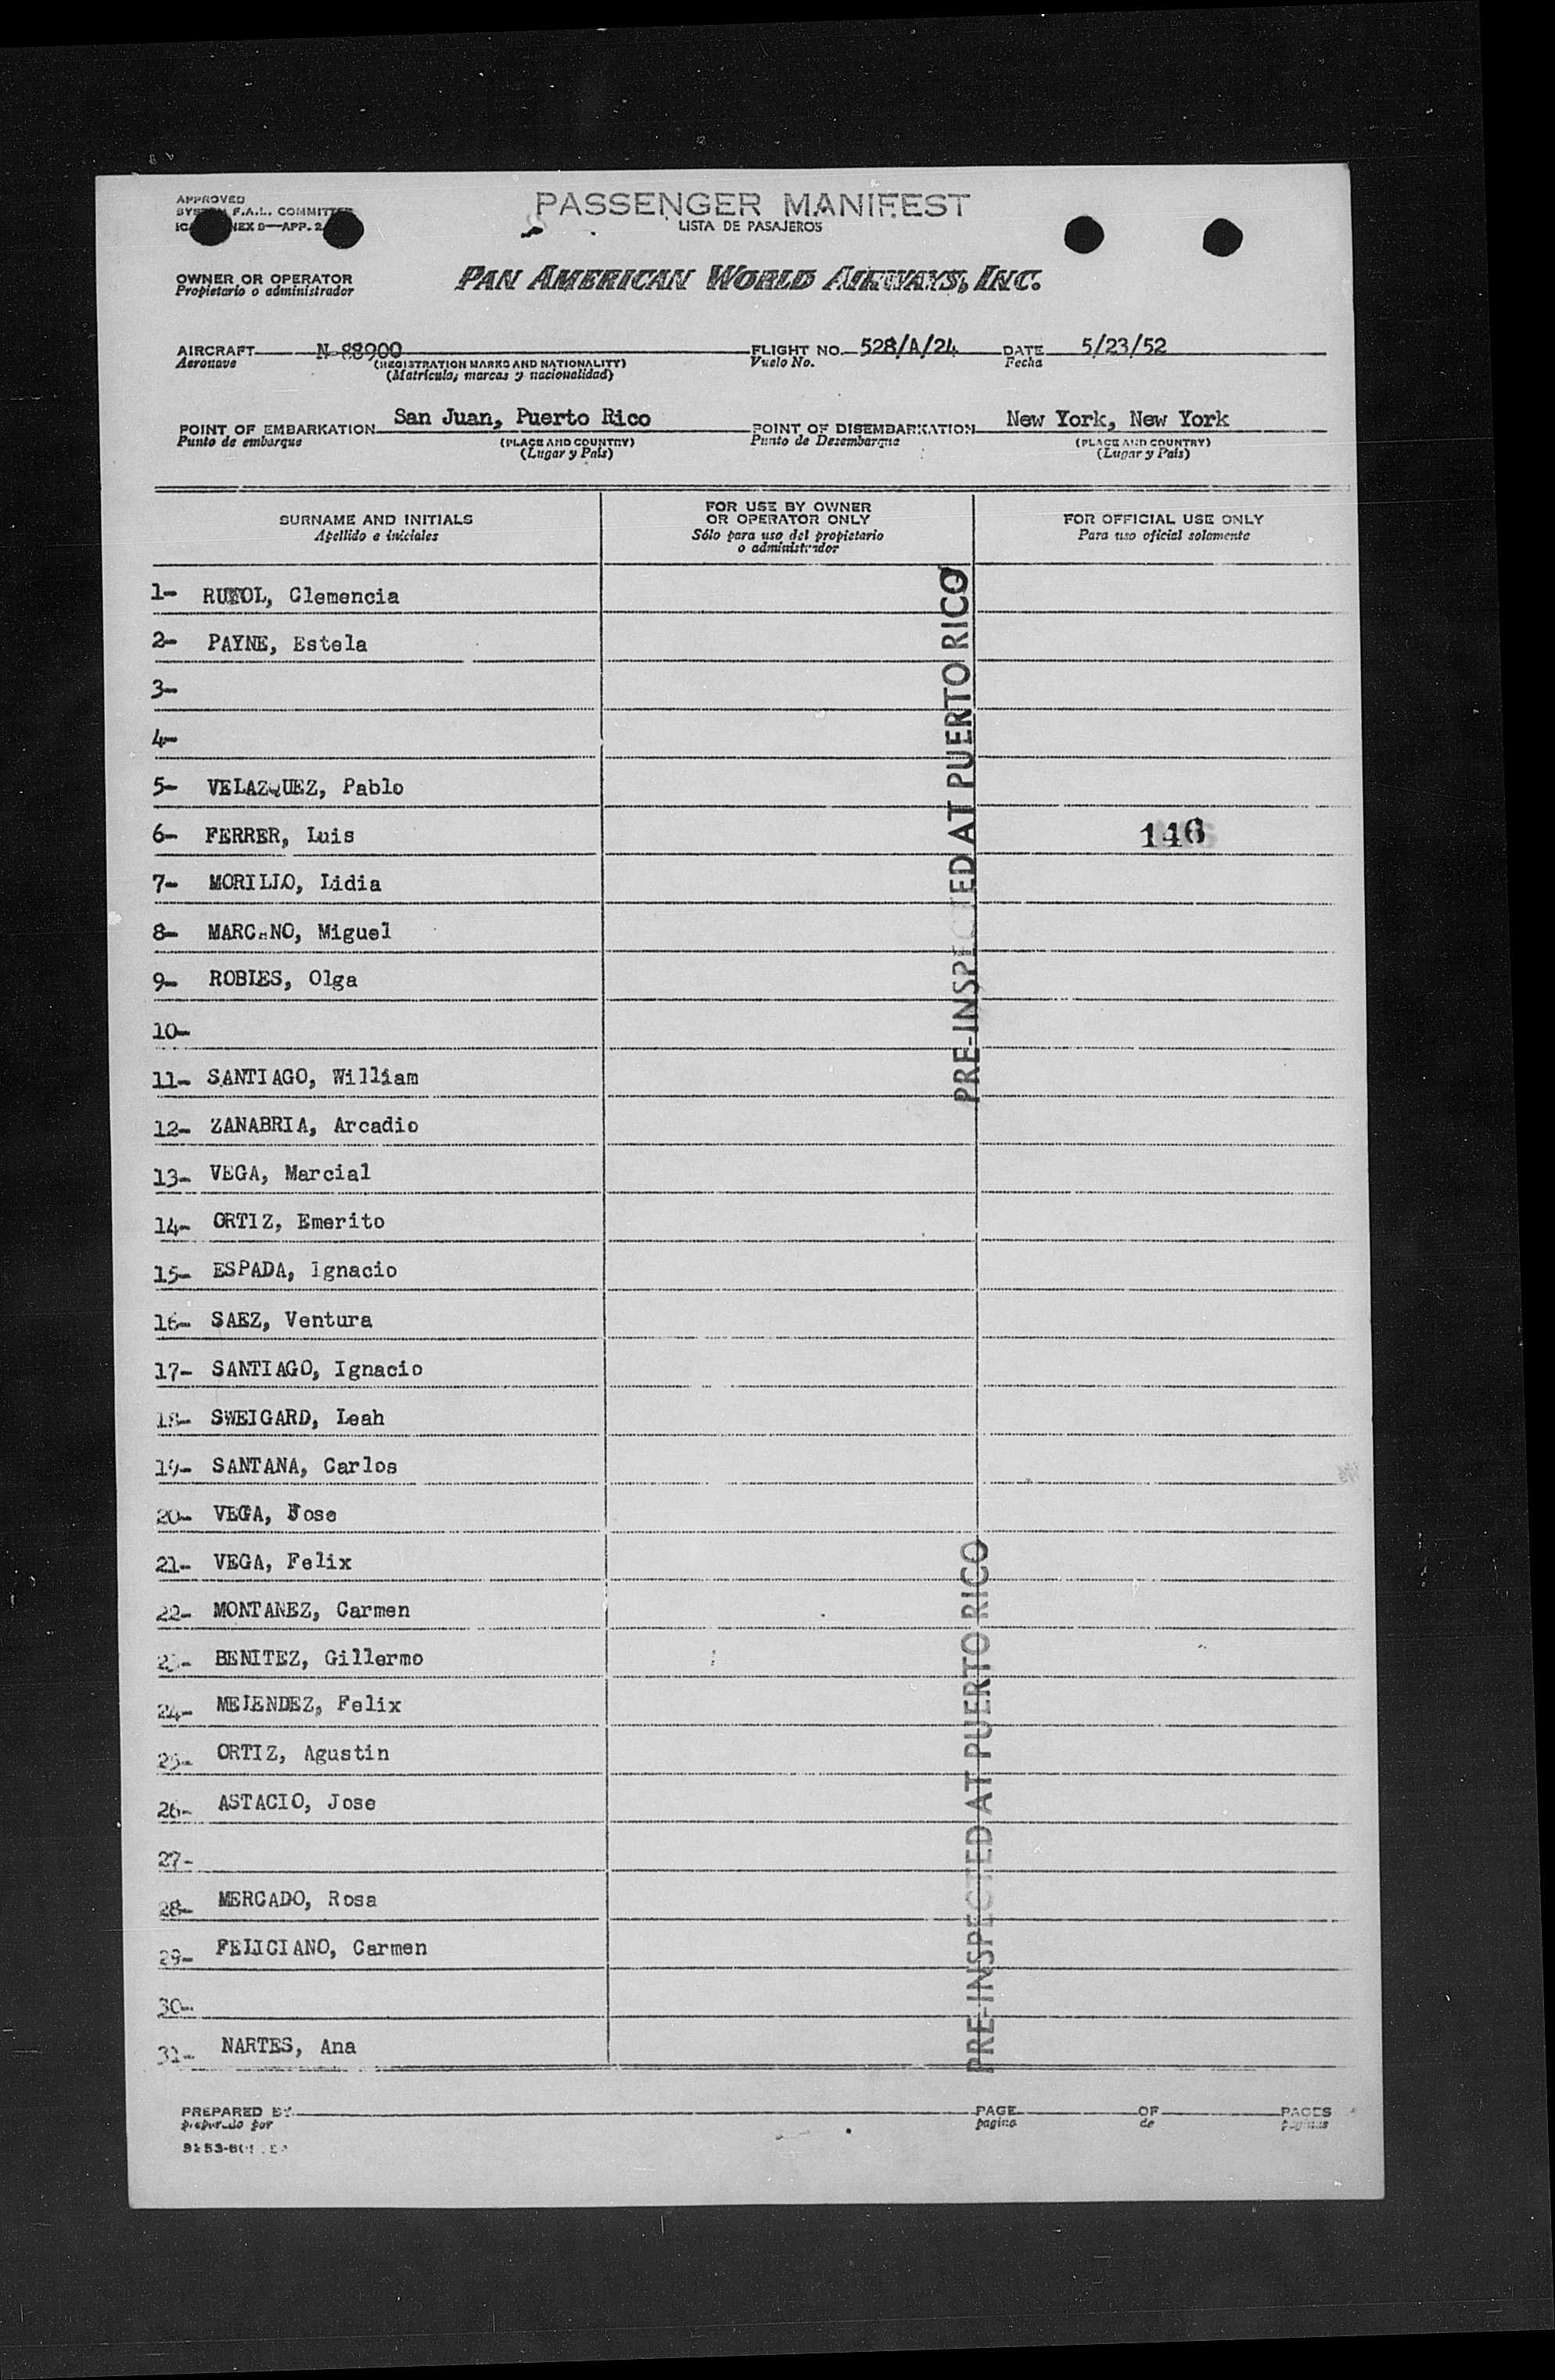 APPROVED
PASSENGER MANIFEST
F.A.L. COMMITTEE
LISTA DE PASAJEROS
9—APP. 2
OWNER OR OPERATOR
Propietario o administrador
PAN AMERICAN WORLD AIRWAYS, INC.
AIRCRAFT N-88900 FLIGHT NO. 528/A/24 DATE 5/23/52
Aeronave (REGISTRATION MARKS AND NATIONALITY) Vuelo No. Fecha
(Matricula, marcas y nacionalidad)
POINT OF EMBARKATION San Juan, Puerto Rico POINT OF DISEMBARKATION New York, New York
Punto de embarque (PLACE AND COUNTRY) Punto de Desembarque (PLACE AND COUNTRY)
(Lugar y País) (Lugar y País)
SURNAME AND INITIALS
Apellido e iniciales
FOR USE BY OWNER
OR OPERATOR ONLY
Sólo para uso del propietario
o administrador
FOR OFFICIAL USE ONLY
Para uso oficial solamente
1- Clemencia
2- PAYNE, Estela
3-
4-
5- VELAZQUEZ, Pablo
6- FERRER, Luis 146
7- MORILLO, Lidia
8- MARCANO, Miguel
9- ROBLES, Olga
10-
11- SANTIAGO, William
12- ZANABRIA, Arcadio
13- VEGA, Marcial
14- ORTIZ, Emerito
15- ESPADA, Ignacio
16- SAEZ, Ventura
17- SANTIAGO, Ignacio
18- SWEIGARD, Leah
19- SANTANA, Carlos
20- VEGA, Jose
21- VEGA, Felix
22- MONTANEZ, Carmen
23- BENITEZ, Gillermo
24- MELENDEZ, Felix
25- ORTIZ, Agustin
26- ASTACIO, Jose
27-
28- MERCADO, Rosa
29- FELICIANO, Carmen
30-
31- NARTES, Ana
PRE-INSPECTED AT PUERTO RICO
PRE-INSPECTED AT PUERTO RICO
PREPARED BY PAGE OF PAGES
preparado por página de páginas